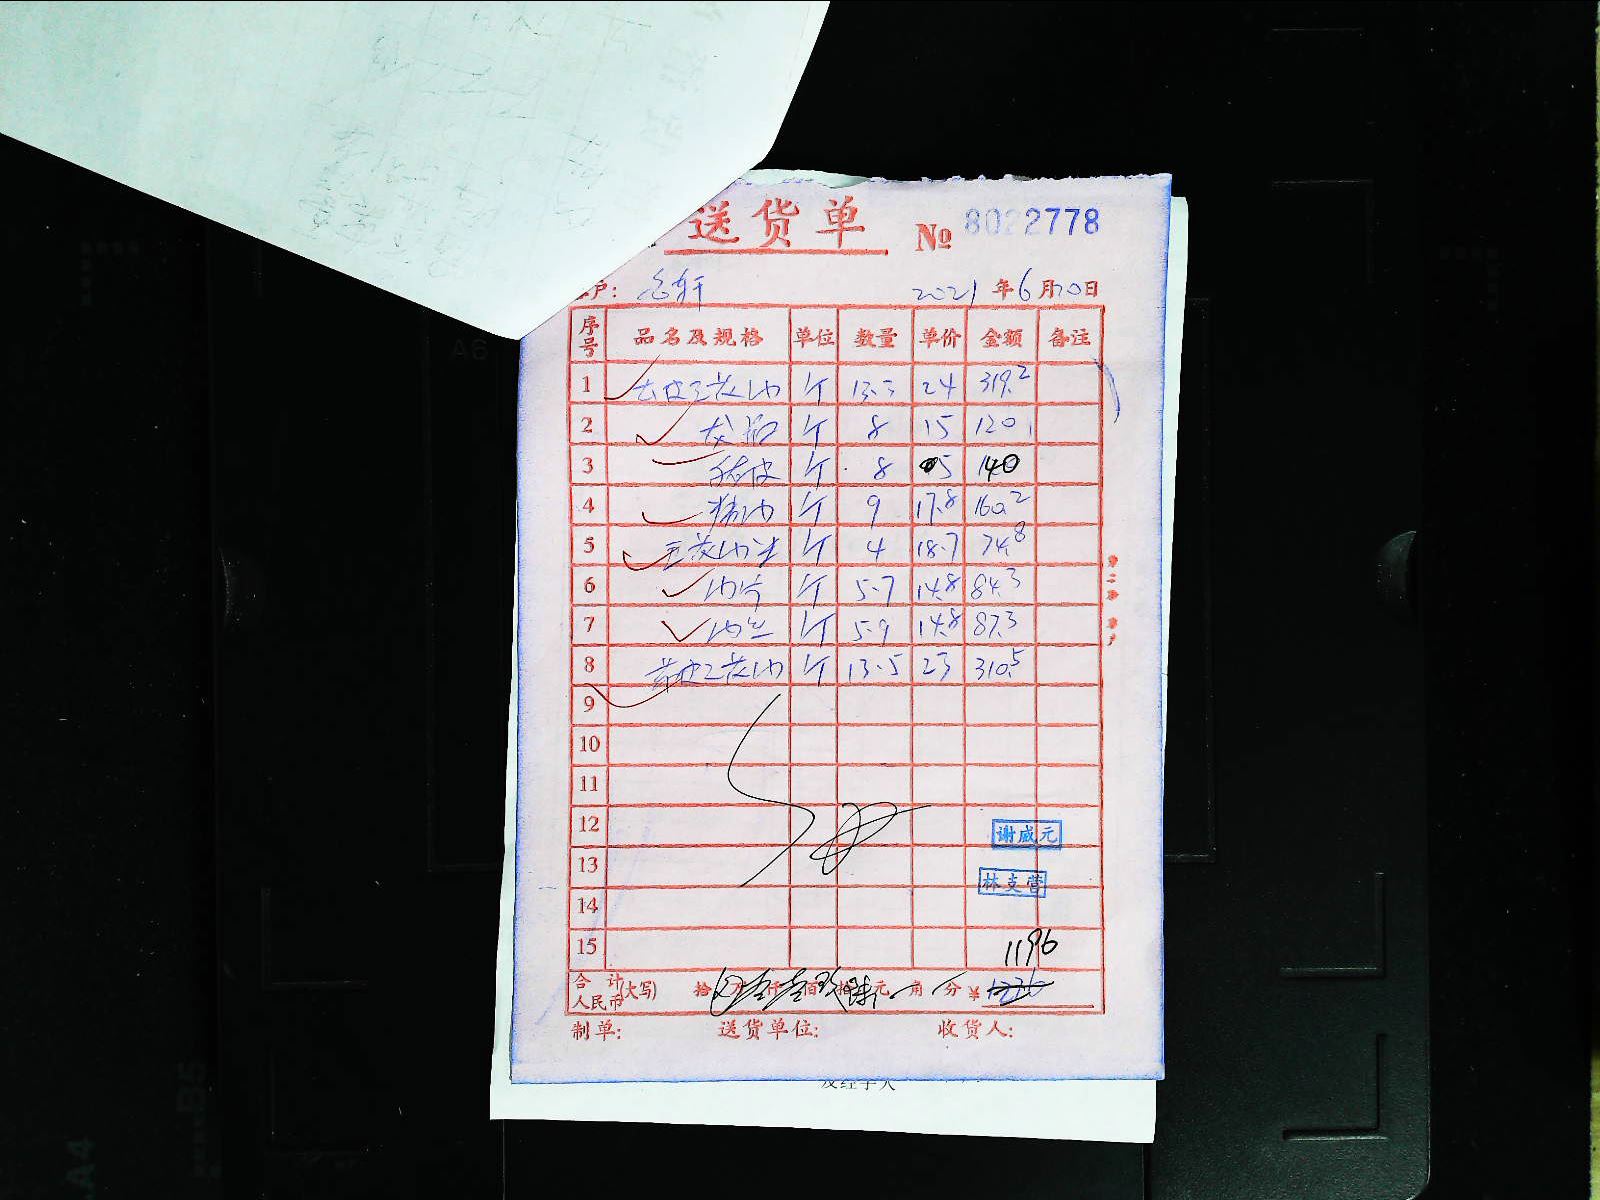 送货单 № 8022778
户: 2021年6月20日
序号 品名及规格 单位 数量 单价 金额 备注
1 去皮三花肉 斤 13.3 24 319.2
2 龙骨 斤 8 15 120
3 猪皮 斤 8 5 40
4 精肉 斤 9 17.8 160.2
5 五花肉 斤 4 18.7 74.8
6 肉片 斤 5.7 14.8 84.3
7 肉丝 斤 5.9 14.8 87.3
8 带皮三花肉 斤 13.5 23 310.5
9
10
11
12 谢威元
13 林支营
14
15 1196
合计人民币(大写) 拾 万 仟 佰 拾 元 角 分 ¥
制单: 送货单位: 收货人:
及经手人
A4
B5